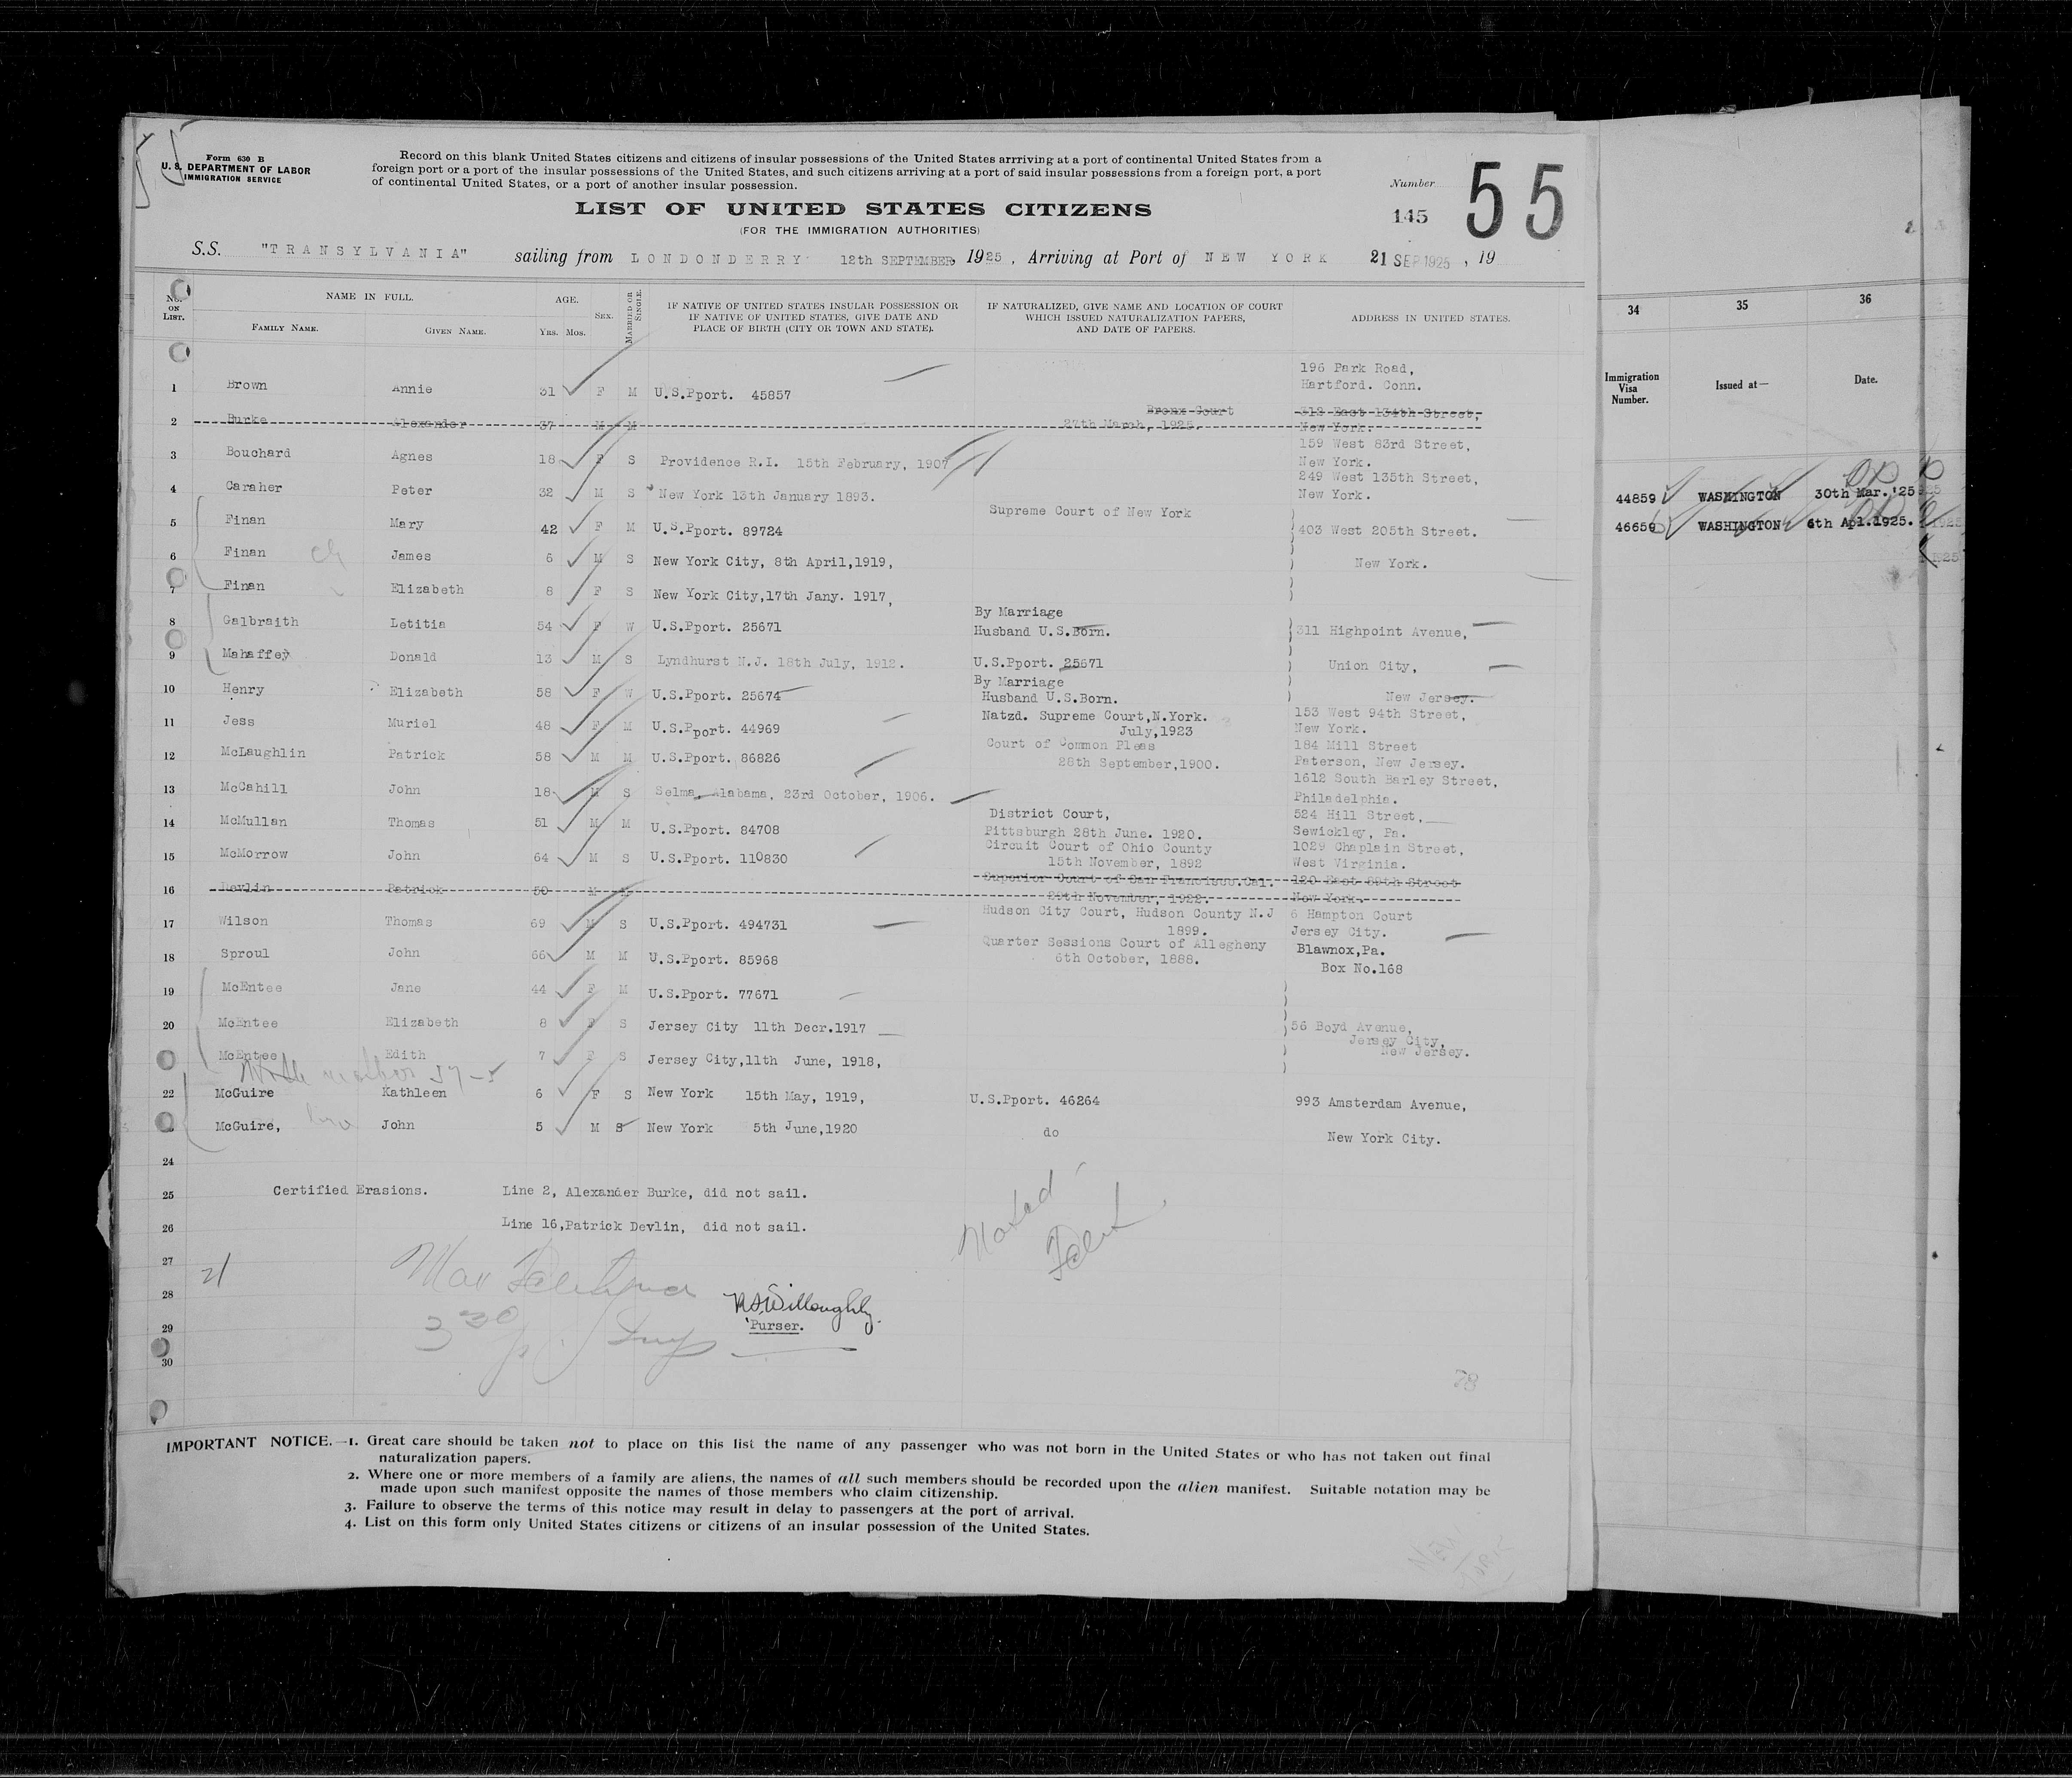 Form 630 B
U. S. DEPARTMENT OF LABOR
IMMIGRATION SERVICE
Record on this blank United States citizens and citizens of insular possessions of the United States arrriving at a port of continental United States from a
foreign port or a port of the insular possessions of the United States, and such citizens arriving at a port of said insular possessions from a foreign port, a port
of continental United States, or a port of another insular possession.
Number
145
55
LIST OF UNITED STATES CITIZENS
(FOR THE IMMIGRATION AUTHORITIES)
S.S. "TRANSYLVANIA" sailing from LONDONDERRY 12th SEPTEMBER, 1925, Arriving at Port of NEW YORK 21 SEP 1925, 19
No. ON LIST.
NAME IN FULL.
FAMILY NAME.
GIVEN NAME.
AGE.
Yrs. Mos.
SEX.
MARRIED OR SINGLE.
IF NATIVE OF UNITED STATES INSULAR POSSESSION OR
IF NATIVE OF UNITED STATES, GIVE DATE AND
PLACE OF BIRTH (CITY OR TOWN AND STATE).
IF NATURALIZED, GIVE NAME AND LOCATION OF COURT
WHICH ISSUED NATURALIZATION PAPERS,
AND DATE OF PAPERS.
ADDRESS IN UNITED STATES.
34
35
36
Immigration
Visa
Number.
Issued at—
Date.
196 Park Road,
1 Brown Annie 31 F M U.S.Pport. 45857 Hartford. Conn.
Bronx Court 312 East 134th Street,
2 Burke Alexander 37 M M 27th March, 1925. New York.
159 West 83rd Street,
3 Bouchard Agnes 18 F S Providence R.I. 15th February, 1907 New York.
249 West 135th Street,
4 Caraher Peter 32 M S New York 13th January 1893. New York.
44859 WASHINGTON 30th Mar. '25
Supreme Court of New York
5 Finan Mary 42 F M U.S.Pport. 89724 403 West 205th Street.
46650 WASHINGTON 6th Apl.1925.
6 Finan James 6 M S New York City, 8th April,1919, New York.
7 Finan Elizabeth 8 F S New York City,17th Jany. 1917,
By Marriage
8 Galbraith Letitia 54 F W U.S.Pport. 25671 Husband U.S.Born. 311 Highpoint Avenue,
9 Mahaffey Donald 13 M S Lyndhurst N.J. 18th July, 1912. U.S.Pport. 25671 Union City,
By Marriage
10 Henry Elizabeth 58 F W U.S.Pport. 25674 Husband U.S.Born. New Jersey.
Natzd. Supreme Court,N.York. 153 West 94th Street,
11 Jess Muriel 48 F M U.S.Pport. 44969 July,1923 New York.
Court of Common Pleas 184 Mill Street
12 McLaughlin Patrick 58 M M U.S.Pport. 86826 28th September,1900. Paterson, New Jersey.
1612 South Barley Street,
13 McCahill John 18 M S Selma, Alabama, 23rd October, 1906. Philadelphia.
District Court, 524 Hill Street,
14 McMullan Thomas 51 M M U.S.Pport. 84708 Pittsburgh 28th June. 1920. Sewickley, Pa.
Circuit Court of Ohio County 1029 Chaplain Street,
15 McMorrow John 64 M S U.S.Pport. 110830 15th November, 1892 West Virginia.
Superior Court of San Francisco.Cal. 120 East 89th Street
16 Devlin Patrick 50 M 29th November, 1922. New York.
Hudson City Court, Hudson County N.J 6 Hampton Court
17 Wilson Thomas 69 M S U.S.Pport. 494731 1899. Jersey City.
Quarter Sessions Court of Allegheny Blawnox,Pa.
18 Sproul John 66 M M U.S.Pport. 85968 6th October, 1888. Box No.168
19 McEntee Jane 44 F M U.S.Pport. 77671
20 McEntee Elizabeth 8 F S Jersey City 11th Decr.1917 56 Boyd Avenue,
Jersey City,
McEntee Edith 7 F S Jersey City,11th June, 1918, New Jersey.
22 McGuire Kathleen 6 F S New York 15th May, 1919, U.S.Pport. 46264 993 Amsterdam Avenue,
McGuire, John 5 M S New York 5th June,1920 do New York City.
24
25 Certified Erasions. Line 2, Alexander Burke, did not sail.
26 Line 16,Patrick Devlin, did not sail.
Noted
27
21
28
Willoughby.
29 Purser.
330
30
78
IMPORTANT NOTICE.—1. Great care should be taken not to place on this list the name of any passenger who was not born in the United States or who has not taken out final
naturalization papers.
2. Where one or more members of a family are aliens, the names of all such members should be recorded upon the alien manifest. Suitable notation may be
made upon such manifest opposite the names of those members who claim citizenship.
3. Failure to observe the terms of this notice may result in delay to passengers at the port of arrival.
4. List on this form only United States citizens or citizens of an insular possession of the United States.
NEW YORK